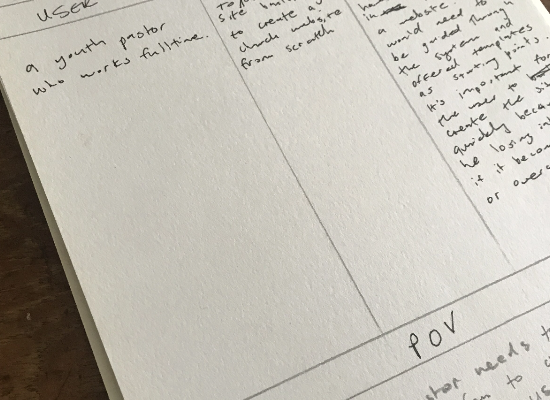 USER
a youth pastor
who works fulltime.
site
to create a
church website
from scratch
in
a website.
would need to
be guided through
the system and
offered templates
as starting points.
It's important
the user to
create the
quickly
he losing
if it
or
POV
needs
to